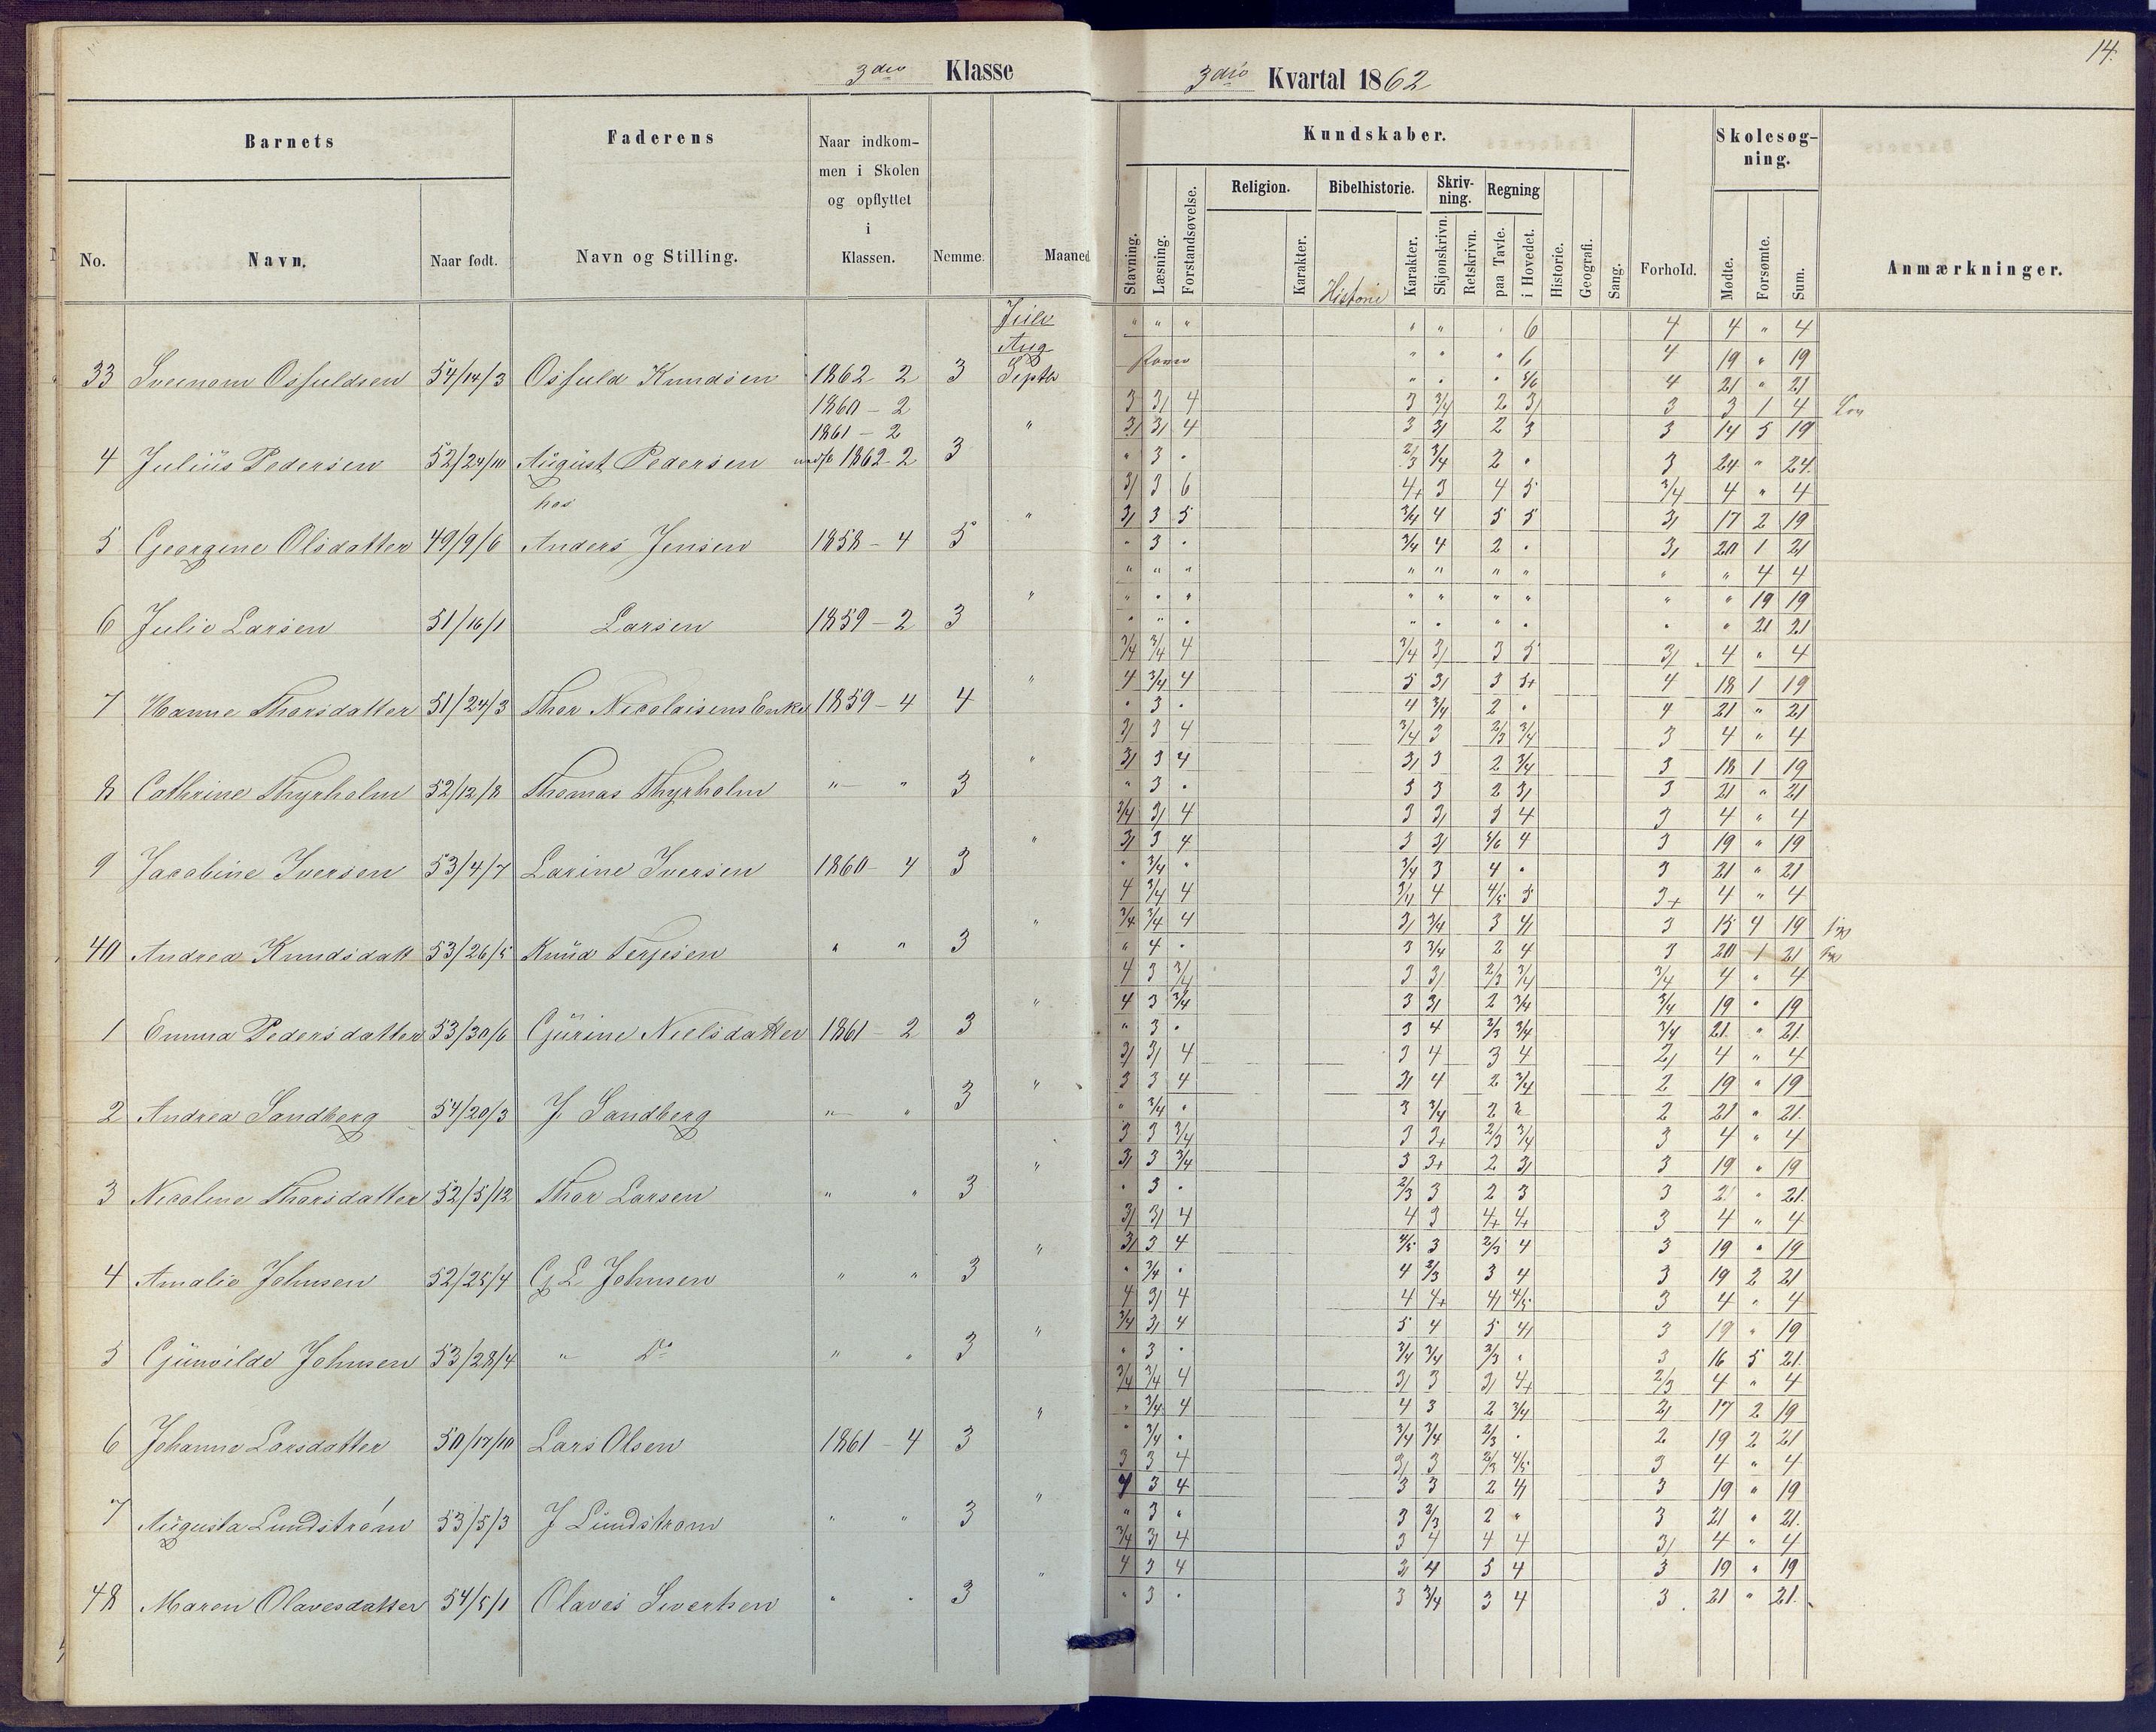 3die Klasse
3die Kvartal 1862
14.
Barnets
Faderens
Naar indkom-
men i Skolen
og opflyttet
i
Klassen.
No.
Navn.
Naar født.
Navn og Stilling.
Nemme.
Maaned
Kundskaber.
Stavning.
Læsning.
Forstandsøvelse.
Religion.
Karakter.
Bibelhistorie.
Historie
Karakter.
Skriv-
ning.
Skjønskrivn.
Retskrivn.
Regning
paa Tavle.
i Hovedet.
Historie.
Geografi.
Sang.
Forhold.
Skolesøg-
ning.
Mødte.
Forsømte.
Sum.
Anmærkninger.
Juli " " " " " 6 4 4 " 4
Aug " " " 6 4 19 " 19
33 Osfuld Knudsen 54/14/3 1862 2 3 Septb " 5/6 4 21 " 21
1860 - 2 3 3/ 4 3 3/4 2 3/ 3 3 1 4
1861 - 2 " 3/ 3/ 4 3 3/ 2 3 3 14 5 19
4 Julius Pedersen 52/24/10 August Pedersen 1862 2 3 " 3 " 2/3 3/4 2 " 3 24 " 24
hos 3/ 3 6 4+ 3 4 5 3/4 4 " 4
" 3/ 3 5 3/4 4 5 5 3/ 17 2 19
5 Georgine Olsdatter 49/9/6 Anders Jensen 1858 - 4 5 " 3 " 3/4 4 2 " 3/ 20 1 21
" " " " " " " " " 4 4
" " " " " " " " " " 19 19
6 Julie Larsen 51/16/1 Larsen 1859 - 2 3 " " " " " " " " " 21 21
3/4 3/4 4 3/4 3/ 3 5 3/ 4 " 4
" 4 3/4 4 5 3/ 3 5+ 4 18 1 19
7 Hanne Thorsdatter 51/24/3 Thor Nicolaisens Enke 1859 - 4 4 " 3 " 4 3/4 2 " 4 21 " 21
3/ 3 4 3/4 3 2/3 3/4 3 4 " 4
" 3/ 3 4 3/ 3 2 3/4 3 18 1 19
8 Cathrine Thyrholm 52/12/8 Thomas Thyrholm " " 3 " 3 " 3 3 2 3/ 3 21 " 21
3/4 3/ 4 3 3/ 3 4 3 4 " 4
" 3/ 3 4 3 3/ 5/6 4 3 19 " 19
9 Jacobine Iversen 53/4/7 Larine Iversen 1860 - 4 3 " 3/4 " 3/4 3 4 " 3 21 " 21
4 3/4 4 3/4 4 4/5 5 3+ 4 " 4
" 3/4 3/4 4 3/ 3/4 3 4/ 3 15 4 19
40 Andrea Knudsdatt 53/26/5 Knud Terjesen " " 3 " 4 " 3 3/4 2 4 3 20 1 21
4 3 3/4 3 3/ 2/3 3/4 3/4 4 " 4
" 4 3 3/4 3 3/ 2 3/4 3/4 19 " 19
1 Emma Pedersdatter 53/30/6 Gjurine Nielsdatter 1861 - 2 3 " 3 " 3 4 2/3 3/4 3/4 21 " 21
3/ 3/ 4 3 4 3 4 2/ 4 " 4
" 3 3 4 3/ 4 2 3/4 2 19 " 19
2 Andrea Sandberg 54/20/3 J. Sandberg " " 3 " 3/4 " 3 3/4 2 2 21 " 21
3 3 3/4 3 3+ 2/3 3/4 3 4 " 4
" 3/ 3 3/4 3 3+ 2 3/ 3 19 " 19
3 Nicoline Thorsdatter 52/5/12 Thor Larsen " " 3 " 3 " 2/3 3 2 3 3 21 " 21
3/ 3/ 4 4 3 4+ 4+ 3 4 " 4
" 3/ 3 4 4/5 3 2/3 4 3 19 " 19
4 Amalie Johnsen 52/25/4 G L Johnsen " " 3 " 3/4 " 4 2/3 3 4 3 19 2 21
4 3/ 4 4 4+ 4/ 4/5 3 4 " 4
" 3/4 3/ 4 5 4 5 4/ 3 19 " 19
5 Gunvilde Johnsen 53/28/4 " Do " " 3 " 3 " 3/4 3/4 2/3 " 3 16 5 21
3/4 3/4 4 3/ 3 3/ 4+ 2/3 4 " 4
" " 3/4 4 4 3 2 3/4 2/ 17 2 19
6 Johanne Larsdatter 50/17/10 Lars Olsen 1861 - 4 3 " 3/4 " 3/4 3/4 2/3 " 2 19 2 21
3 3 4 3/ 3 2/3 4/5 3 4 " 4
" 4 3 4 3 3 2 4/ 3 19 " 19
7 Augusta Lundstrøm 53/5/3 J Lundstrom " " 3 " 3 " 3 2/3 2 " 3 21 " 21
3/4 3/ 4 3 4 4 4 3/ 4 " 4
" 4 3 4 3/ 4 5 4 3 19 " 19
48 Maren Olavesdatter 54/5/1 Olaves Sivertsen " " 3 " 3 " 3 3/4 3 4 3 21 " 21